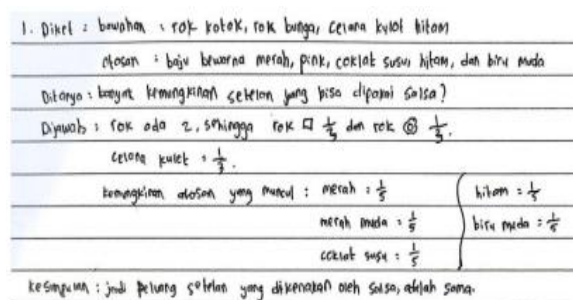 1. Diket : bawahan : rok kotak, rok bunga, celana kulot hitam
atasan : baju bewarna merah, pink, coklat susu, hitam, dan biru muda
Ditanya : banyak kemungkinan setelan yang bisa dipakai salsa?
Dijawab : rok ada 2, sehingga rok □ 1/3 dan rok 1/3.
celana kulot : 1/3.
kemungkinan atasan yang muncul : merah : 1/5 hitam = 1/5
merah muda : 1/5 biru muda = 1/5
coklat susu : 1/5
kesimpulan : jadi peluang setelan yang dikenakan oleh salsa, adalah sama.